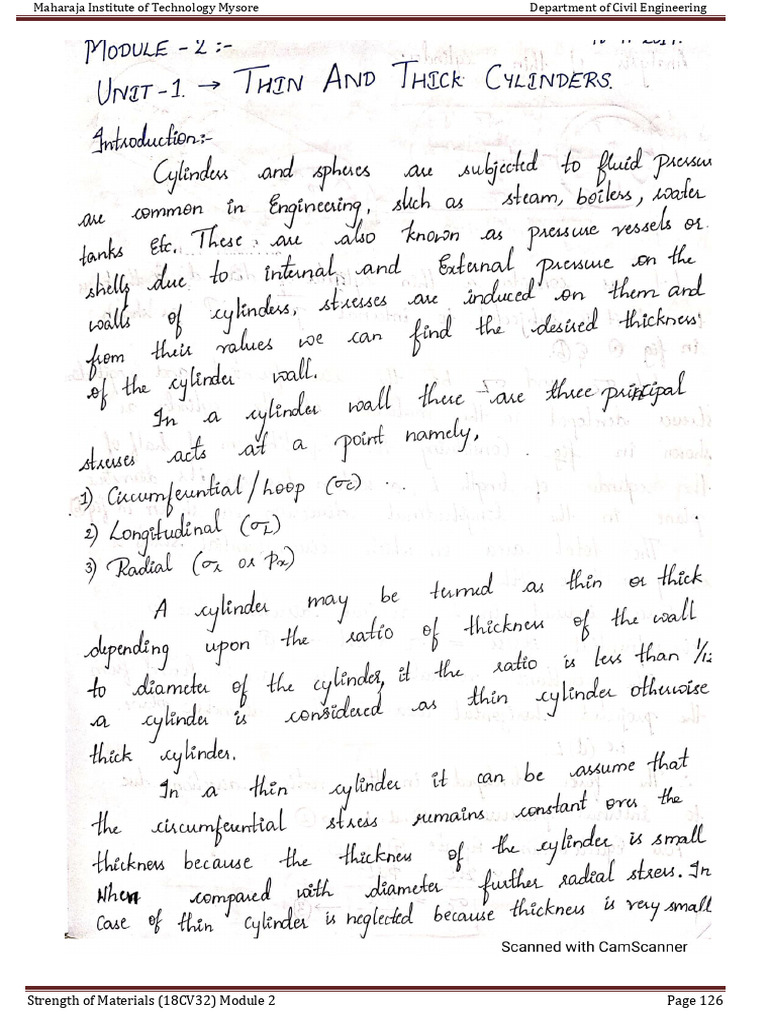 Maharaja Institute of Technology Mysore Department of Civil Engineering
MODULE - 2 :-
UNIT-1. → THIN AND THICK CYLINDERS.
Introduction:-
Cylinders and spheres are subjected to fluid pressure
are common in Engineering, such as steam, boilers, water
tanks Etc. These are also known as pressure vessels or
shells due to internal and External pressure on the
walls of cylinders, stresses are induced on them and
from their values we can find the desired thickness
of the cylinder wall.
In a cylinder wall there are three principal
stresses acts at a point namely,
1) Circumferential/hoop (σc)
2) Longitudinal (σL)
3) Radial (σr or Pr)
A cylinder may be turmed as thin or thick
depending upon the ratio of thickness of the wall
to diameter of the cylinder, if the ratio is less than 1/12
a cylinder is considered as thin cylinder otherwise
thick cylinder.
In a thin cylinder it can be assume that
the circumferential stress remains constant over the
thickness because the thickness of the cylinder is small
When compared with diameter further radial stress. In
case of thin cylinder is neglected because thickness is very small
Scanned with CamScanner
Strength of Materials (18CV32) Module 2 Page 126